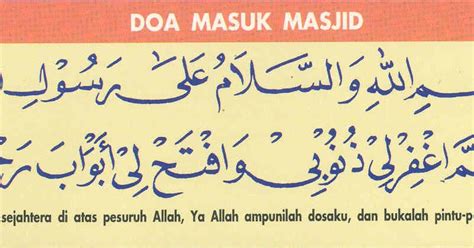 DOA MASUK MASJID
سْمِ اللهِ وَالسَّلَامُ عَلَى رَسُوْلِ
مَّ اغْفِرْلِيْ ذُنُوْبِيْ وَافْتَحْ لِيْ أَبْوَابَ رَحْ
sejahtera di atas pesuruh Allah, Ya Allah ampunilah dosaku, dan bukalah pintu-p